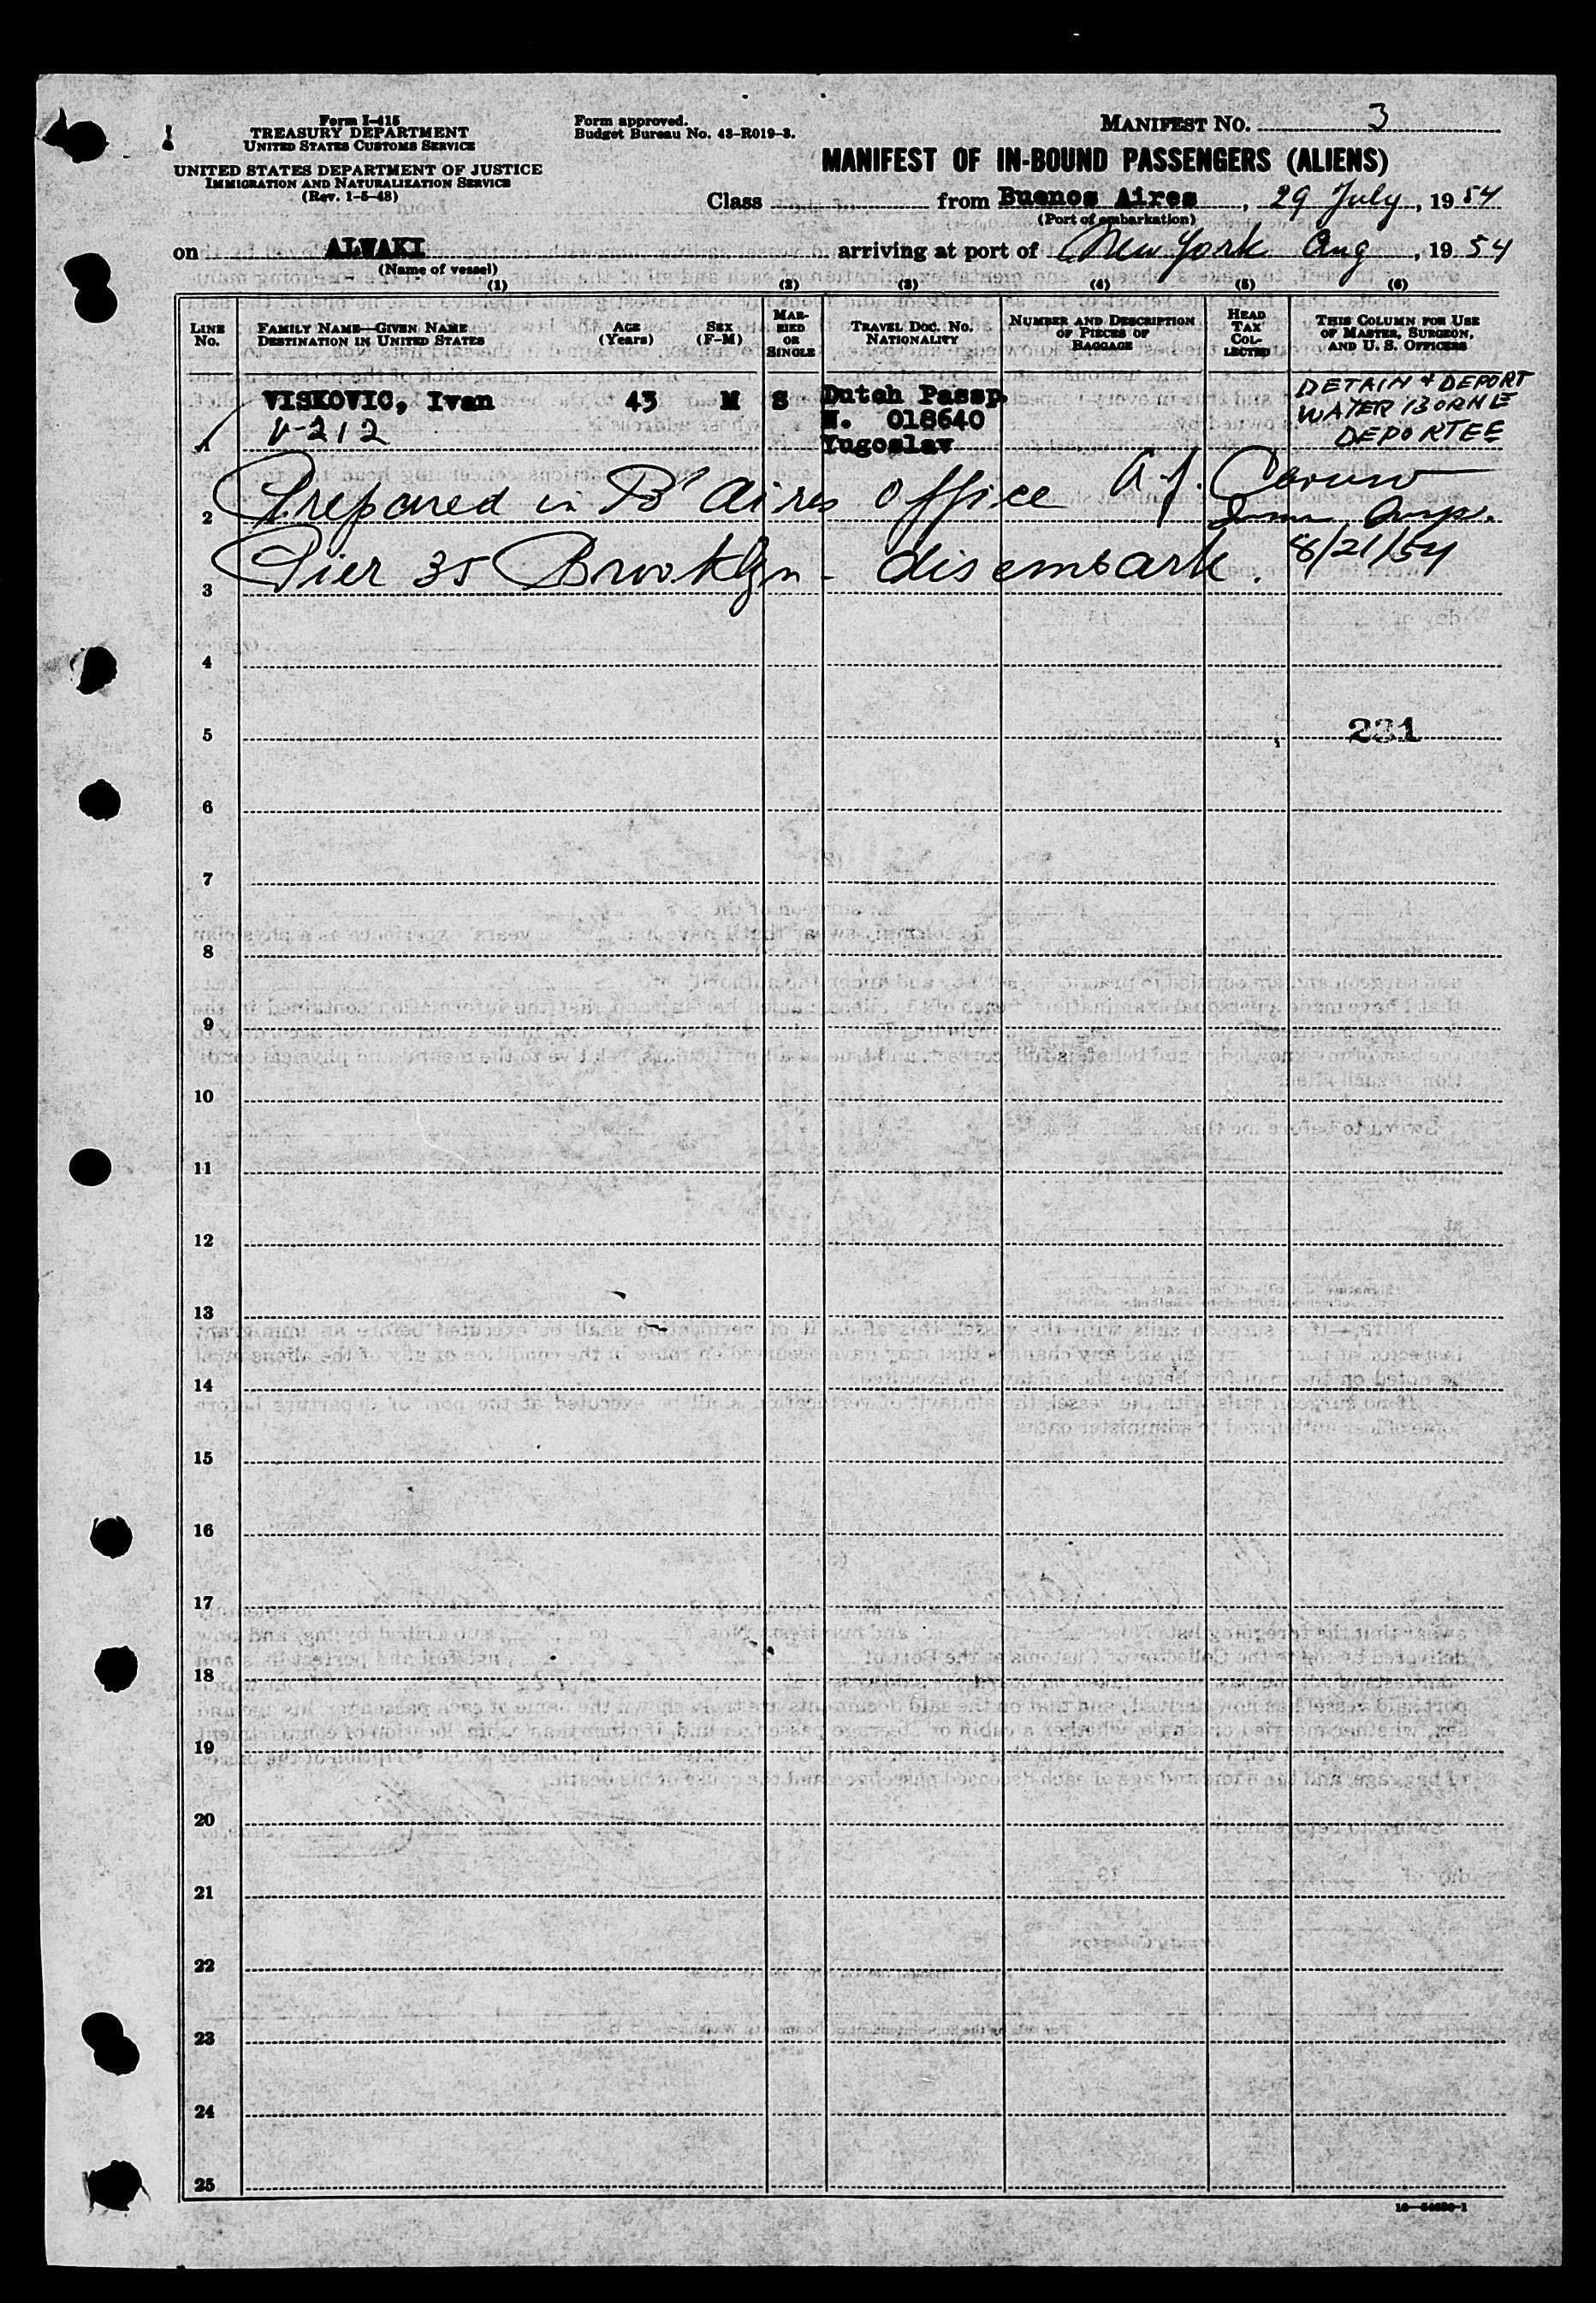 Form I-415
TREASURY DEPARTMENT
UNITED STATES CUSTOMS SERVICE
UNITED STATES DEPARTMENT OF JUSTICE
IMMIGRATION AND NATURALIZATION SERVICE
(Rev. 1-5-48)
Form approved.
Budget Bureau No. 43-R019-3.
MANIFEST NO. 3
MANIFEST OF IN-BOUND PASSENGERS (ALIENS)
Class from Buenos Aires, 29 July, 19 54
(Port of embarkation)
on ALWAKI arriving at port of New York Aug, 19 54
(Name of vessel)
(1) (2) (3) (4) (5) (6)
LINE No.
FAMILY NAME—GIVEN NAME
DESTINATION IN UNITED STATES
AGE (Years)
SEX (F-M)
MARRIED OR SINGLE
TRAVEL DOC. NO.
NATIONALITY
NUMBER AND DESCRIPTION
OF PIECES OF
BAGGAGE
HEAD TAX COLLECTED
THIS COLUMN FOR USE
OF MASTER, SURGEON,
AND U. S. OFFICERS
1 VISKOVIC, Ivan 43 M S Dutch Passp.
V-212
N. 018640
Yugoslav
DETAIN & DEPORT
WATER BORNE
DEPORTEE
2 Prepared in Bs Aires office A.J.
Imm Insp.
3 Pier 35 Brooklyn - disembark. 8/21/54
4
5 231
6
7
8
9
10
11
12
13
14
15
16
17
18
19
20
21
22
23
24
25